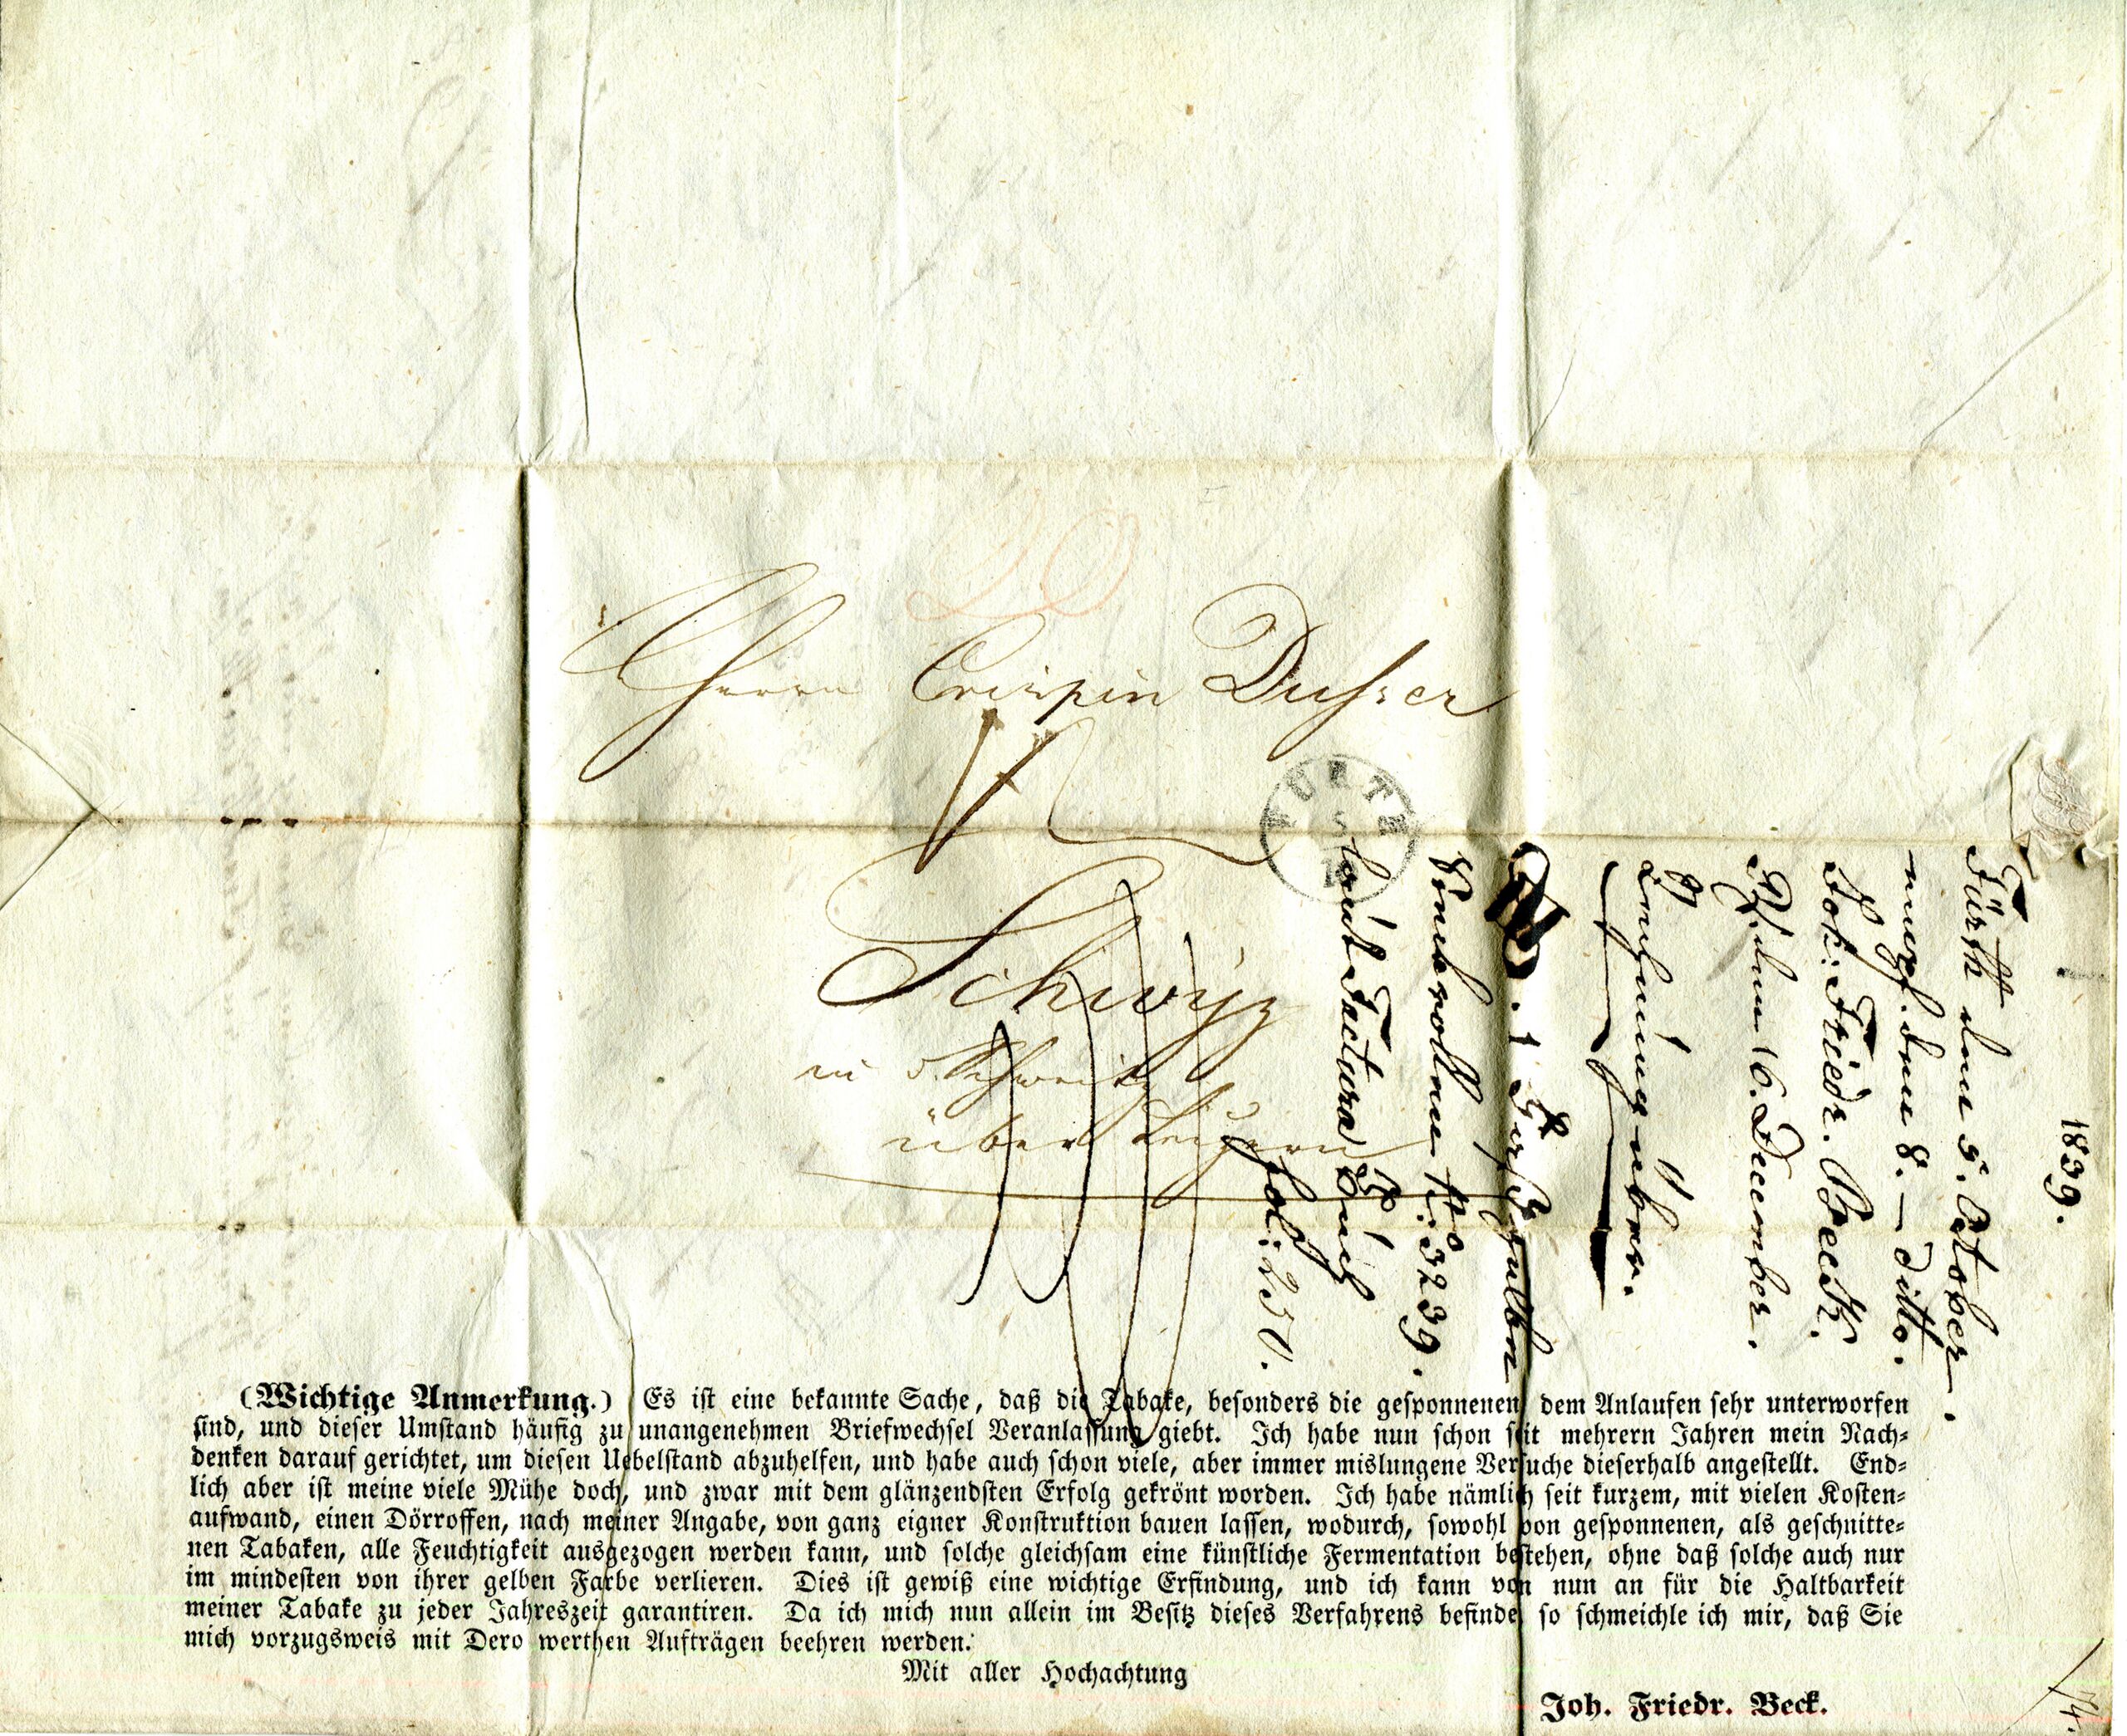 Herrn Crispin Dusser
Schwyz
in d. Schweitz
über Luzern
FÜRTH
1839.
Fürth den 5. October.
den 8. — ditto.
Joh: Friedr. Beck.
den 16. December.
No. 3239.
laut Factura
fol:
(Wichtige Anmerkung.) Es ist eine bekannte Sache, daß die Tabake, besonders die gesponnenen dem Anlaufen sehr unterworfen
sind, und dieser Umstand häufig zu unangenehmen Briefwechsel Veranlassung giebt. Ich habe nun schon seit mehrern Jahren mein Nach-
denken darauf gerichtet, um diesen Uebelstand abzuhelfen, und habe auch schon viele, aber immer mislungene Versuche dieserhalb angestellt. End-
lich aber ist meine viele Mühe doch, und zwar mit dem glänzendsten Erfolg gekrönt worden. Ich habe nämlich seit kurzem, mit vielen Kosten-
aufwand, einen Dörroffen, nach meiner Angabe, von ganz eigner Konstruktion bauen lassen, wodurch, sowohl von gesponnenen, als geschnitte-
nen Tabaken, alle Feuchtigkeit ausgezogen werden kann, und solche gleichsam eine künstliche Fermentation bestehen, ohne daß solche auch nur
im mindesten von ihrer gelben Farbe verlieren. Dies ist gewiß eine wichtige Erfindung, und ich kann von nun an für die Haltbarkeit
meiner Tabake zu jeder Jahreszeit garantiren. Da ich mich nun allein im Besitz dieses Verfahrens befinde, so schmeichle ich mir, daß Sie
mich vorzugsweis mit Dero werthen Aufträgen beehren werden.
Mit aller Hochachtung
Joh. Friedr. Beck.